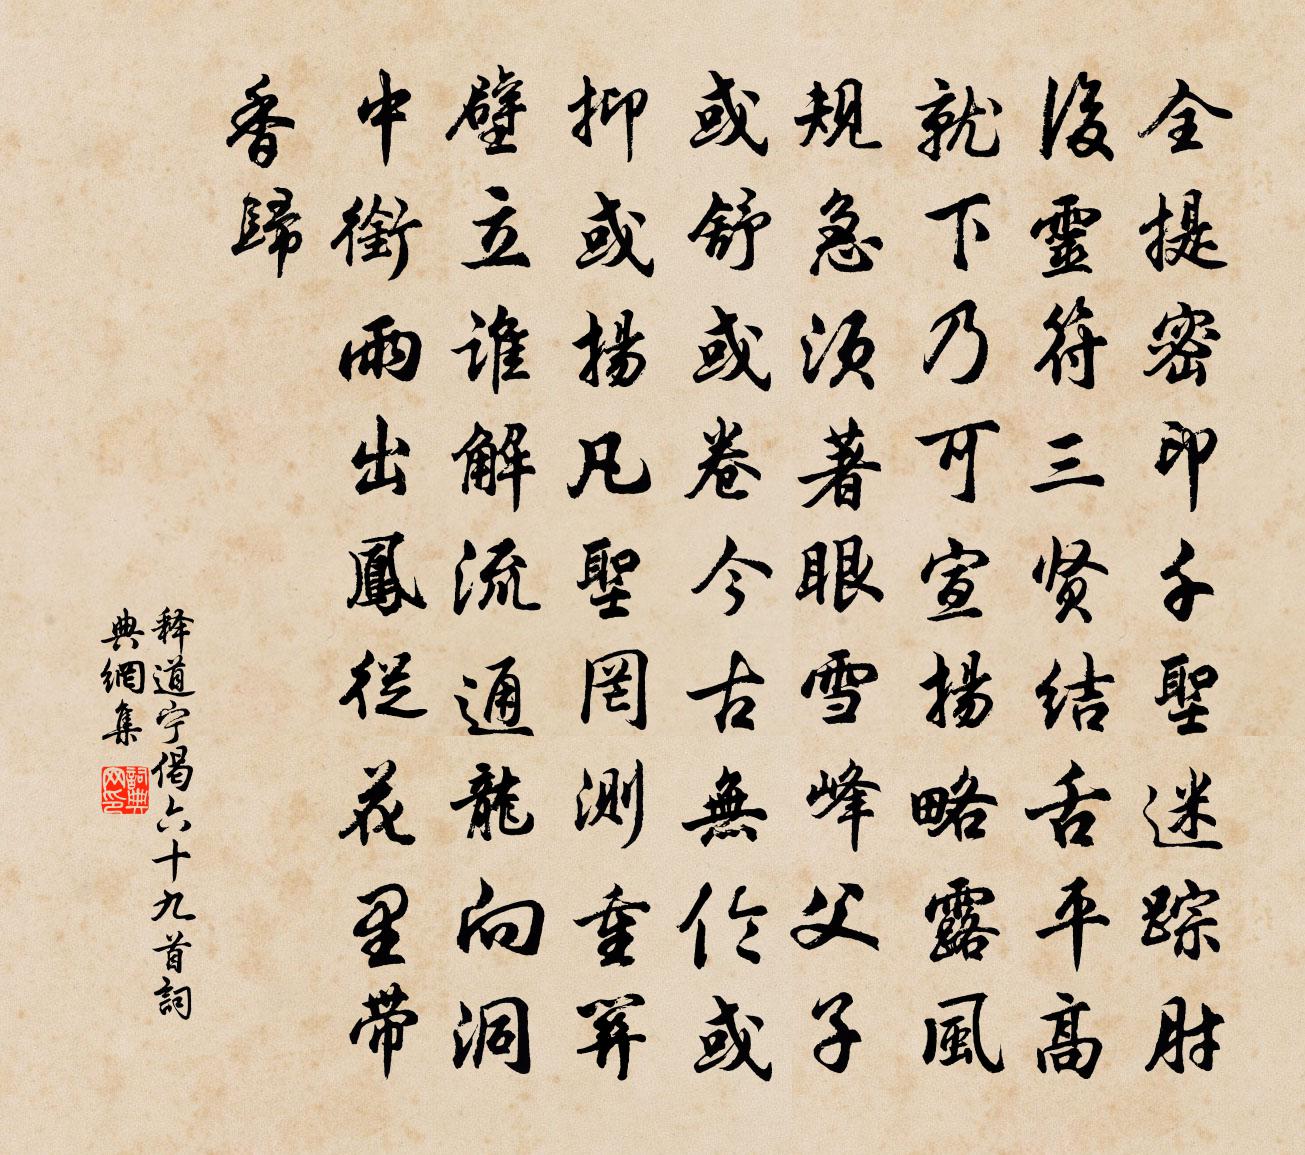 全提密印千聖迷踪肘
後靈符三贤结舌平高
就下乃可宣揚略露風
規急须著眼雪峰父子
或舒或卷今古無伦或
抑或揚凡聖罔測重关
壁立谁解流通龍向洞
中銜雨出鳳從花里带
香歸
释道宁偈六十九首詞
典網集
詞典网印